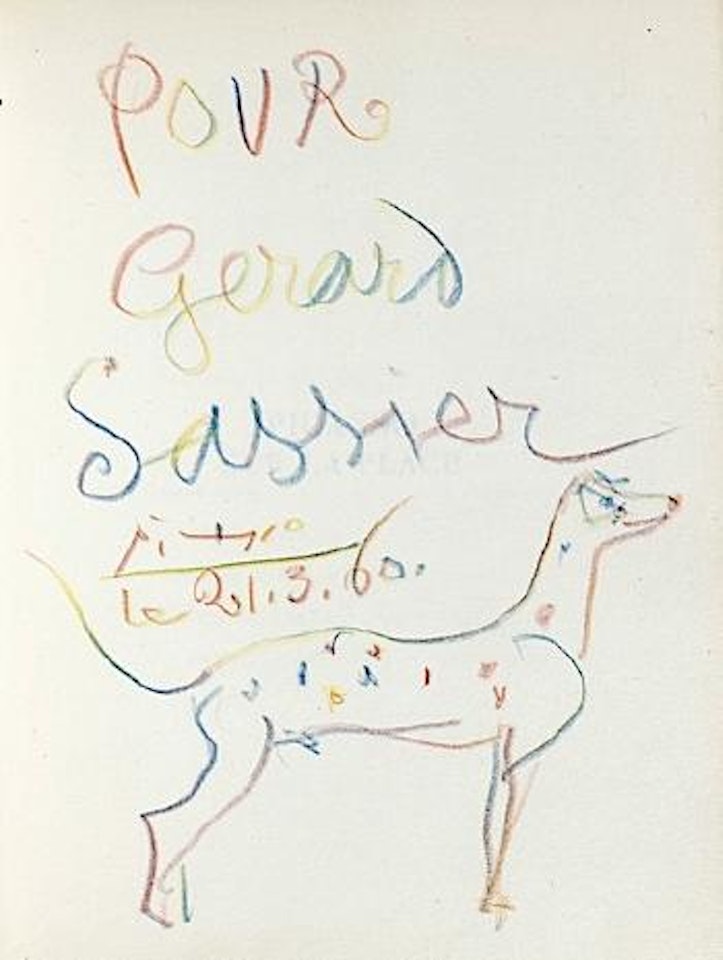 POUR
Gerard
Sassier
Picasso
le 21.3.60.